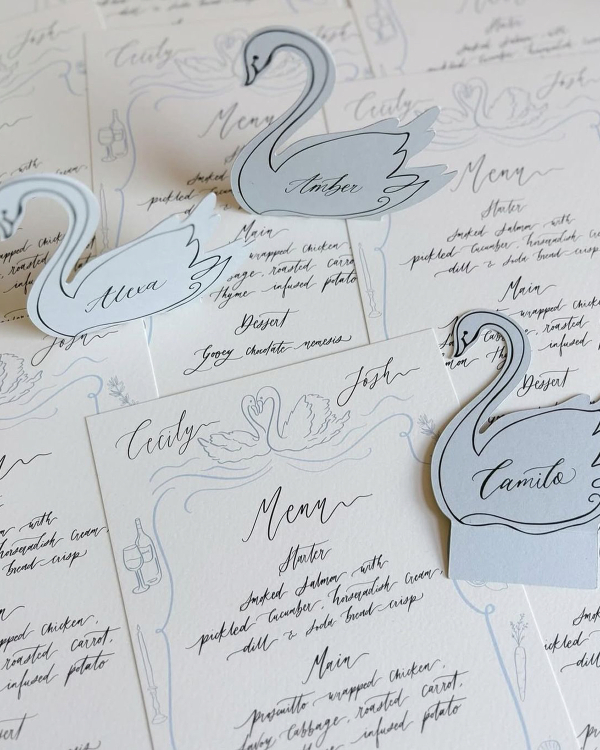 Cecily
Josh
Menu
Starter
Smoked Salmon with
pickled Cucumber, horseradish Cream,
dill & Soda bread crisp
Main
prosciutto wrapped Chicken,
Savoy Cabbage, roasted Carrot,
thyme infused potato
Amber
Alexa
Camilo
Cecily
Josh
Menu
Smoked
pickled
Main
wrapped Chicken
roasted Carro
thyme infused potato
Dessert
Gooey Chocolate nemesis
Cecily
Josh
Menu
Starter
Smoked Salmon with
pickled Cucumber, horseradish Cre
dill & Soda bread crisp
Main
wrapped Chicke
roasted
infused
Dessert
Josh
with
horseradish Cream,
bread crisp
wrapped Chicken,
roasted Carrot,
infused potato
Starter
Smoked Salmon with